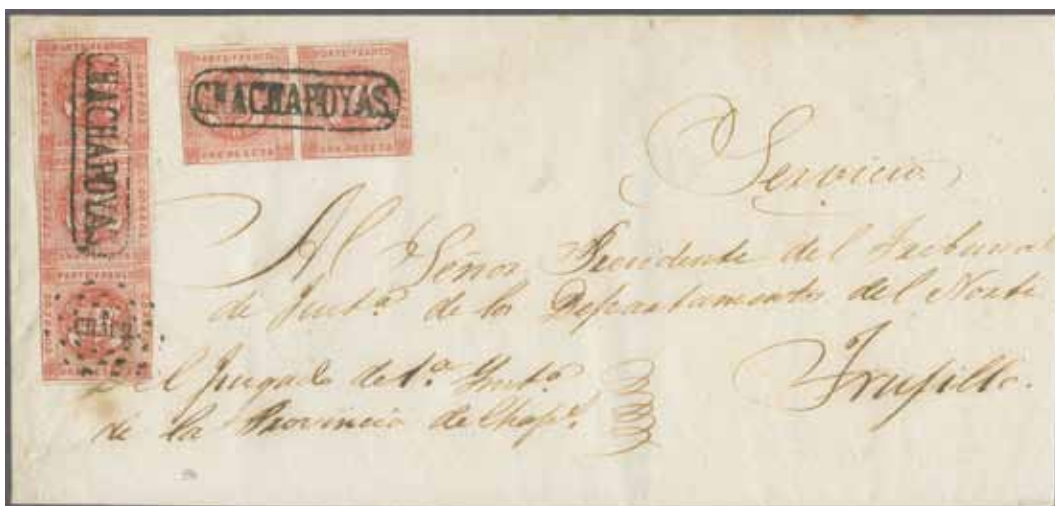 CHACHAPOYAS
CHACHAPOYAS
PORTE FRANCO
CORREOS
UNA PESETA
Servicio
Al Señor Presidente del Tribunal
de Justª de los Departamentos del Norte
Trujillo.
el Juzgado de 1ª Instª
de la Provincia de Chapˢ